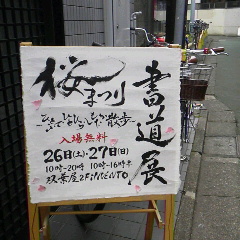 桜まつり
書道展
入場無料
26日(土)・27日(日)
10時~20時 10時~16時半
双葉屋2F